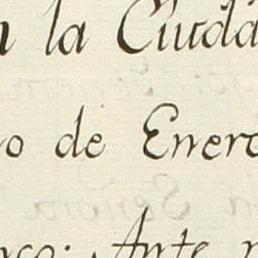 n la Ciudá
o de Enero
nco: Ante